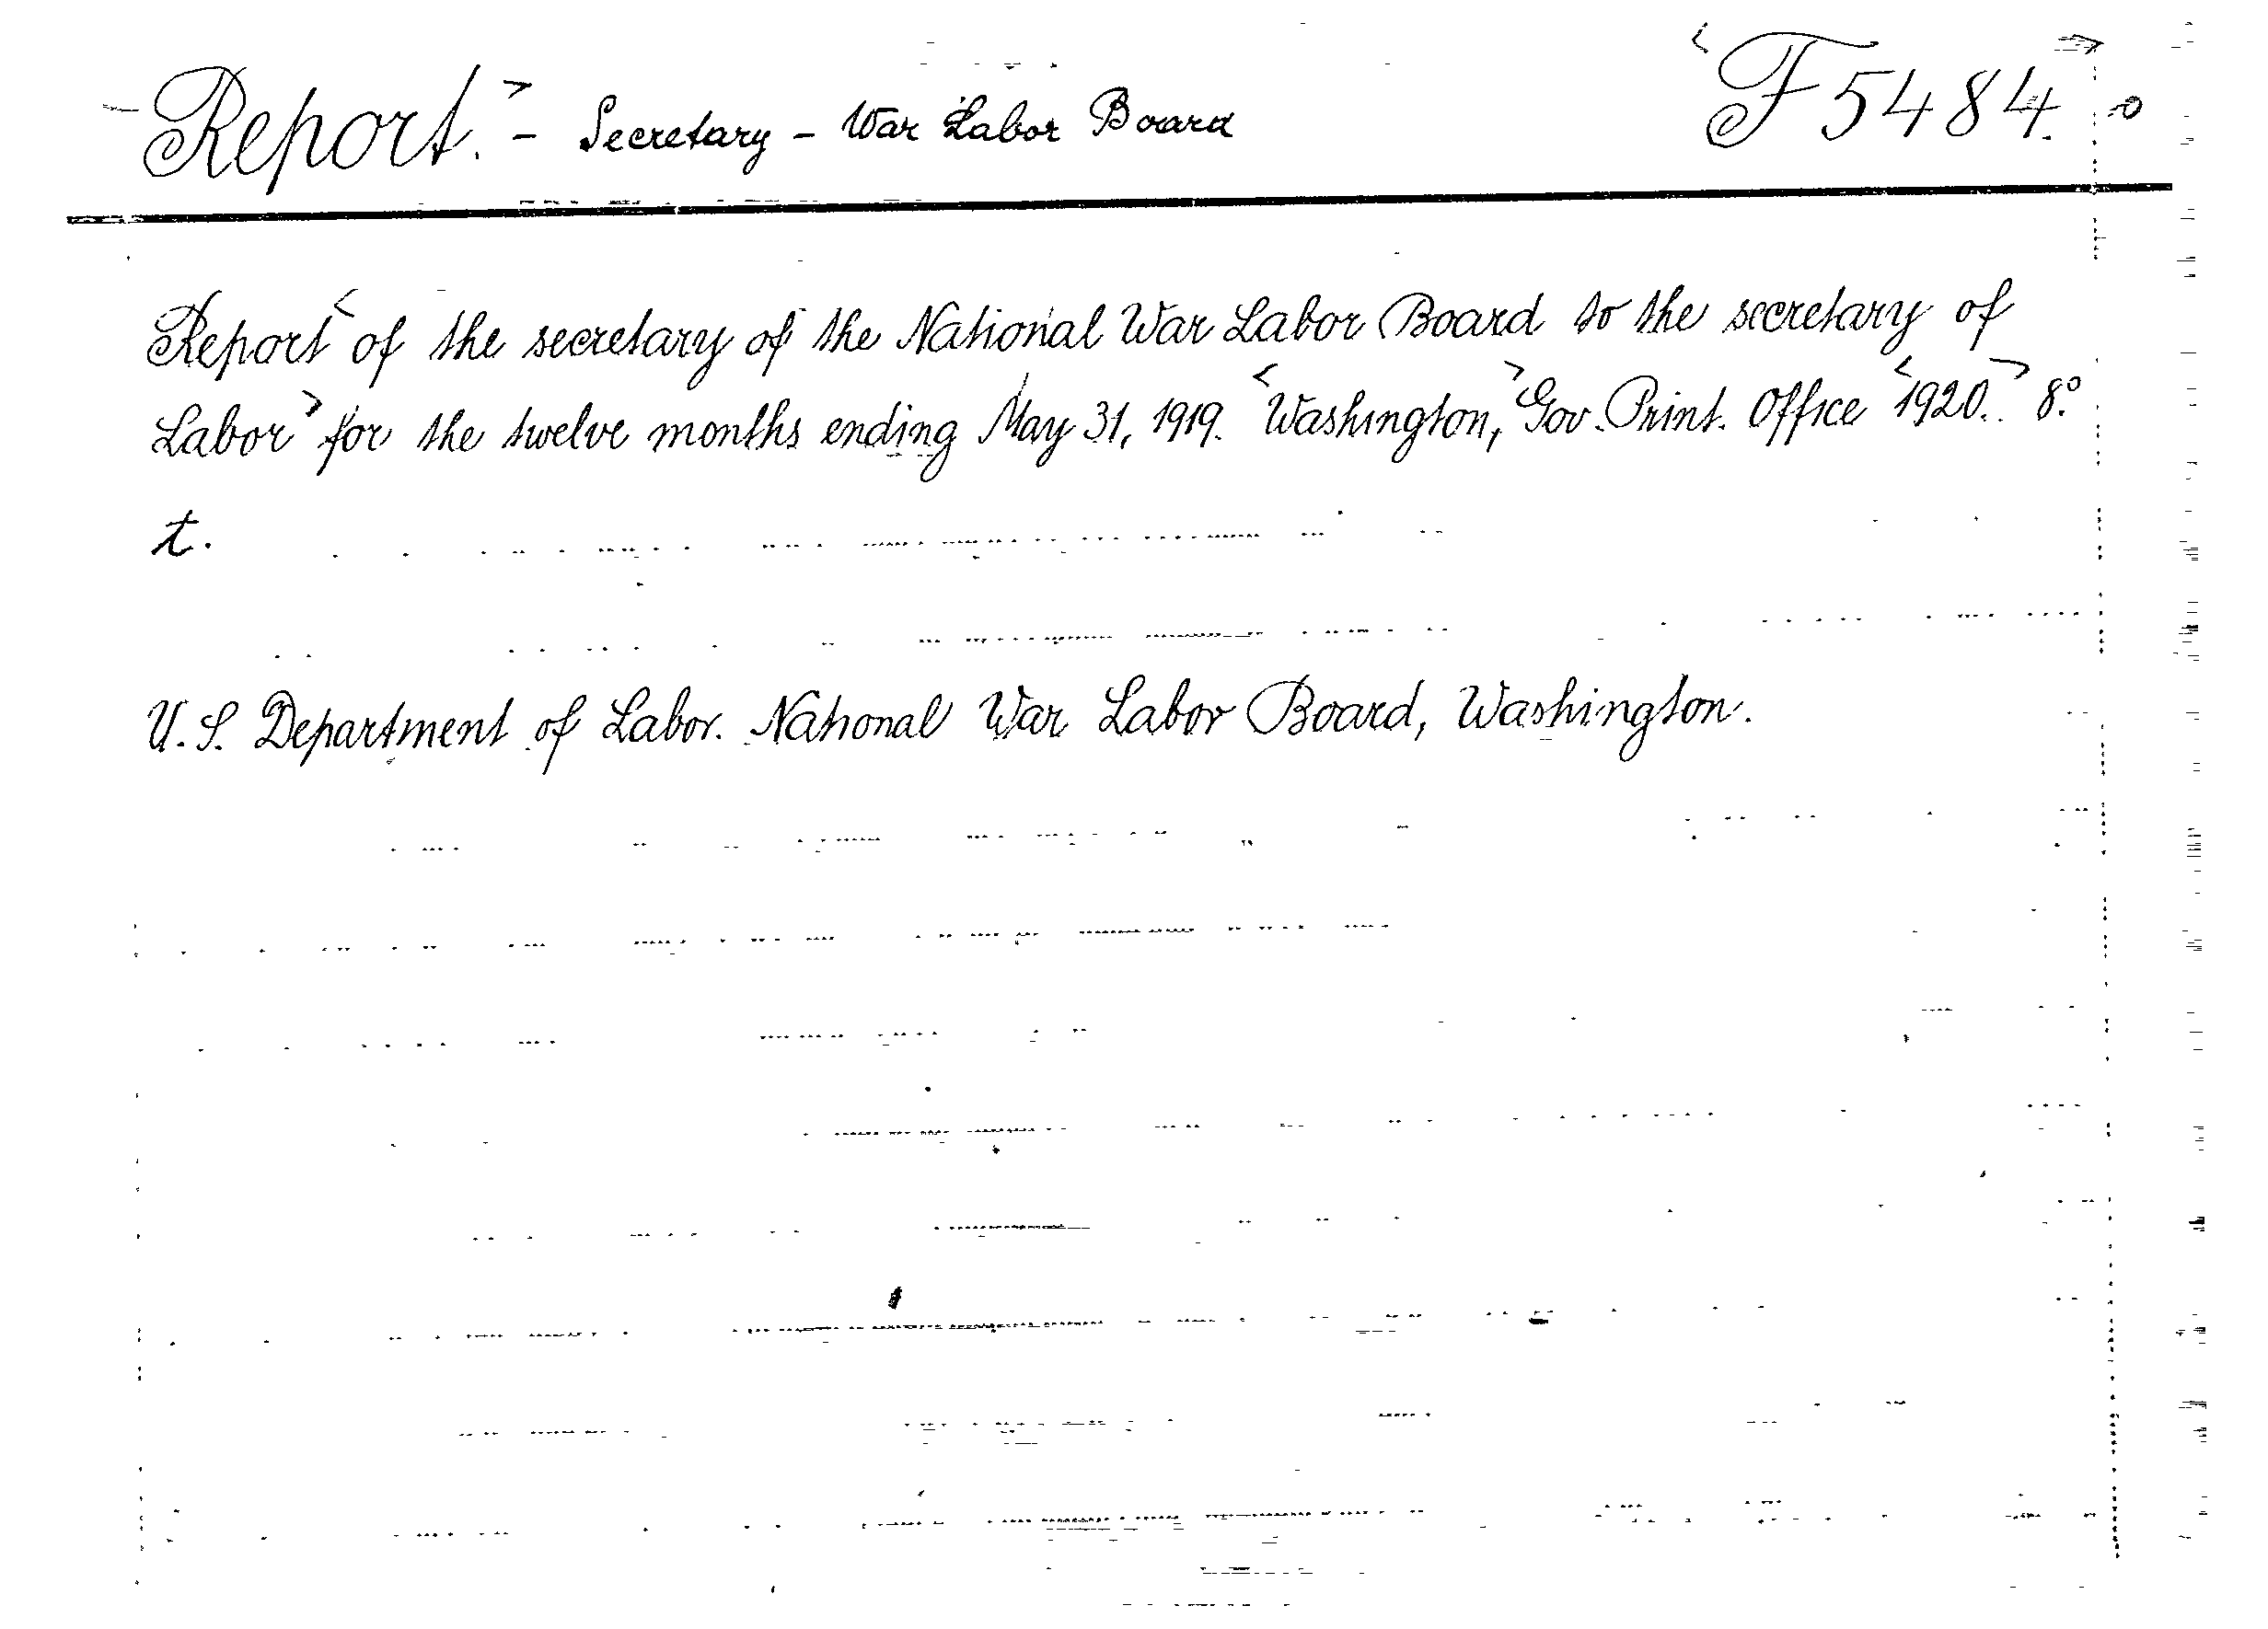 Report. - Secretary - War Labor Board F 5484.
Report of the secretary of the National War Labor Board to the secretary of
Labor for the twelve months ending May 31, 1919. Washington, Gov. Print. Office 1920. 8.°
t.
U. S. Department of Labor. National War Labor Board, Washington.